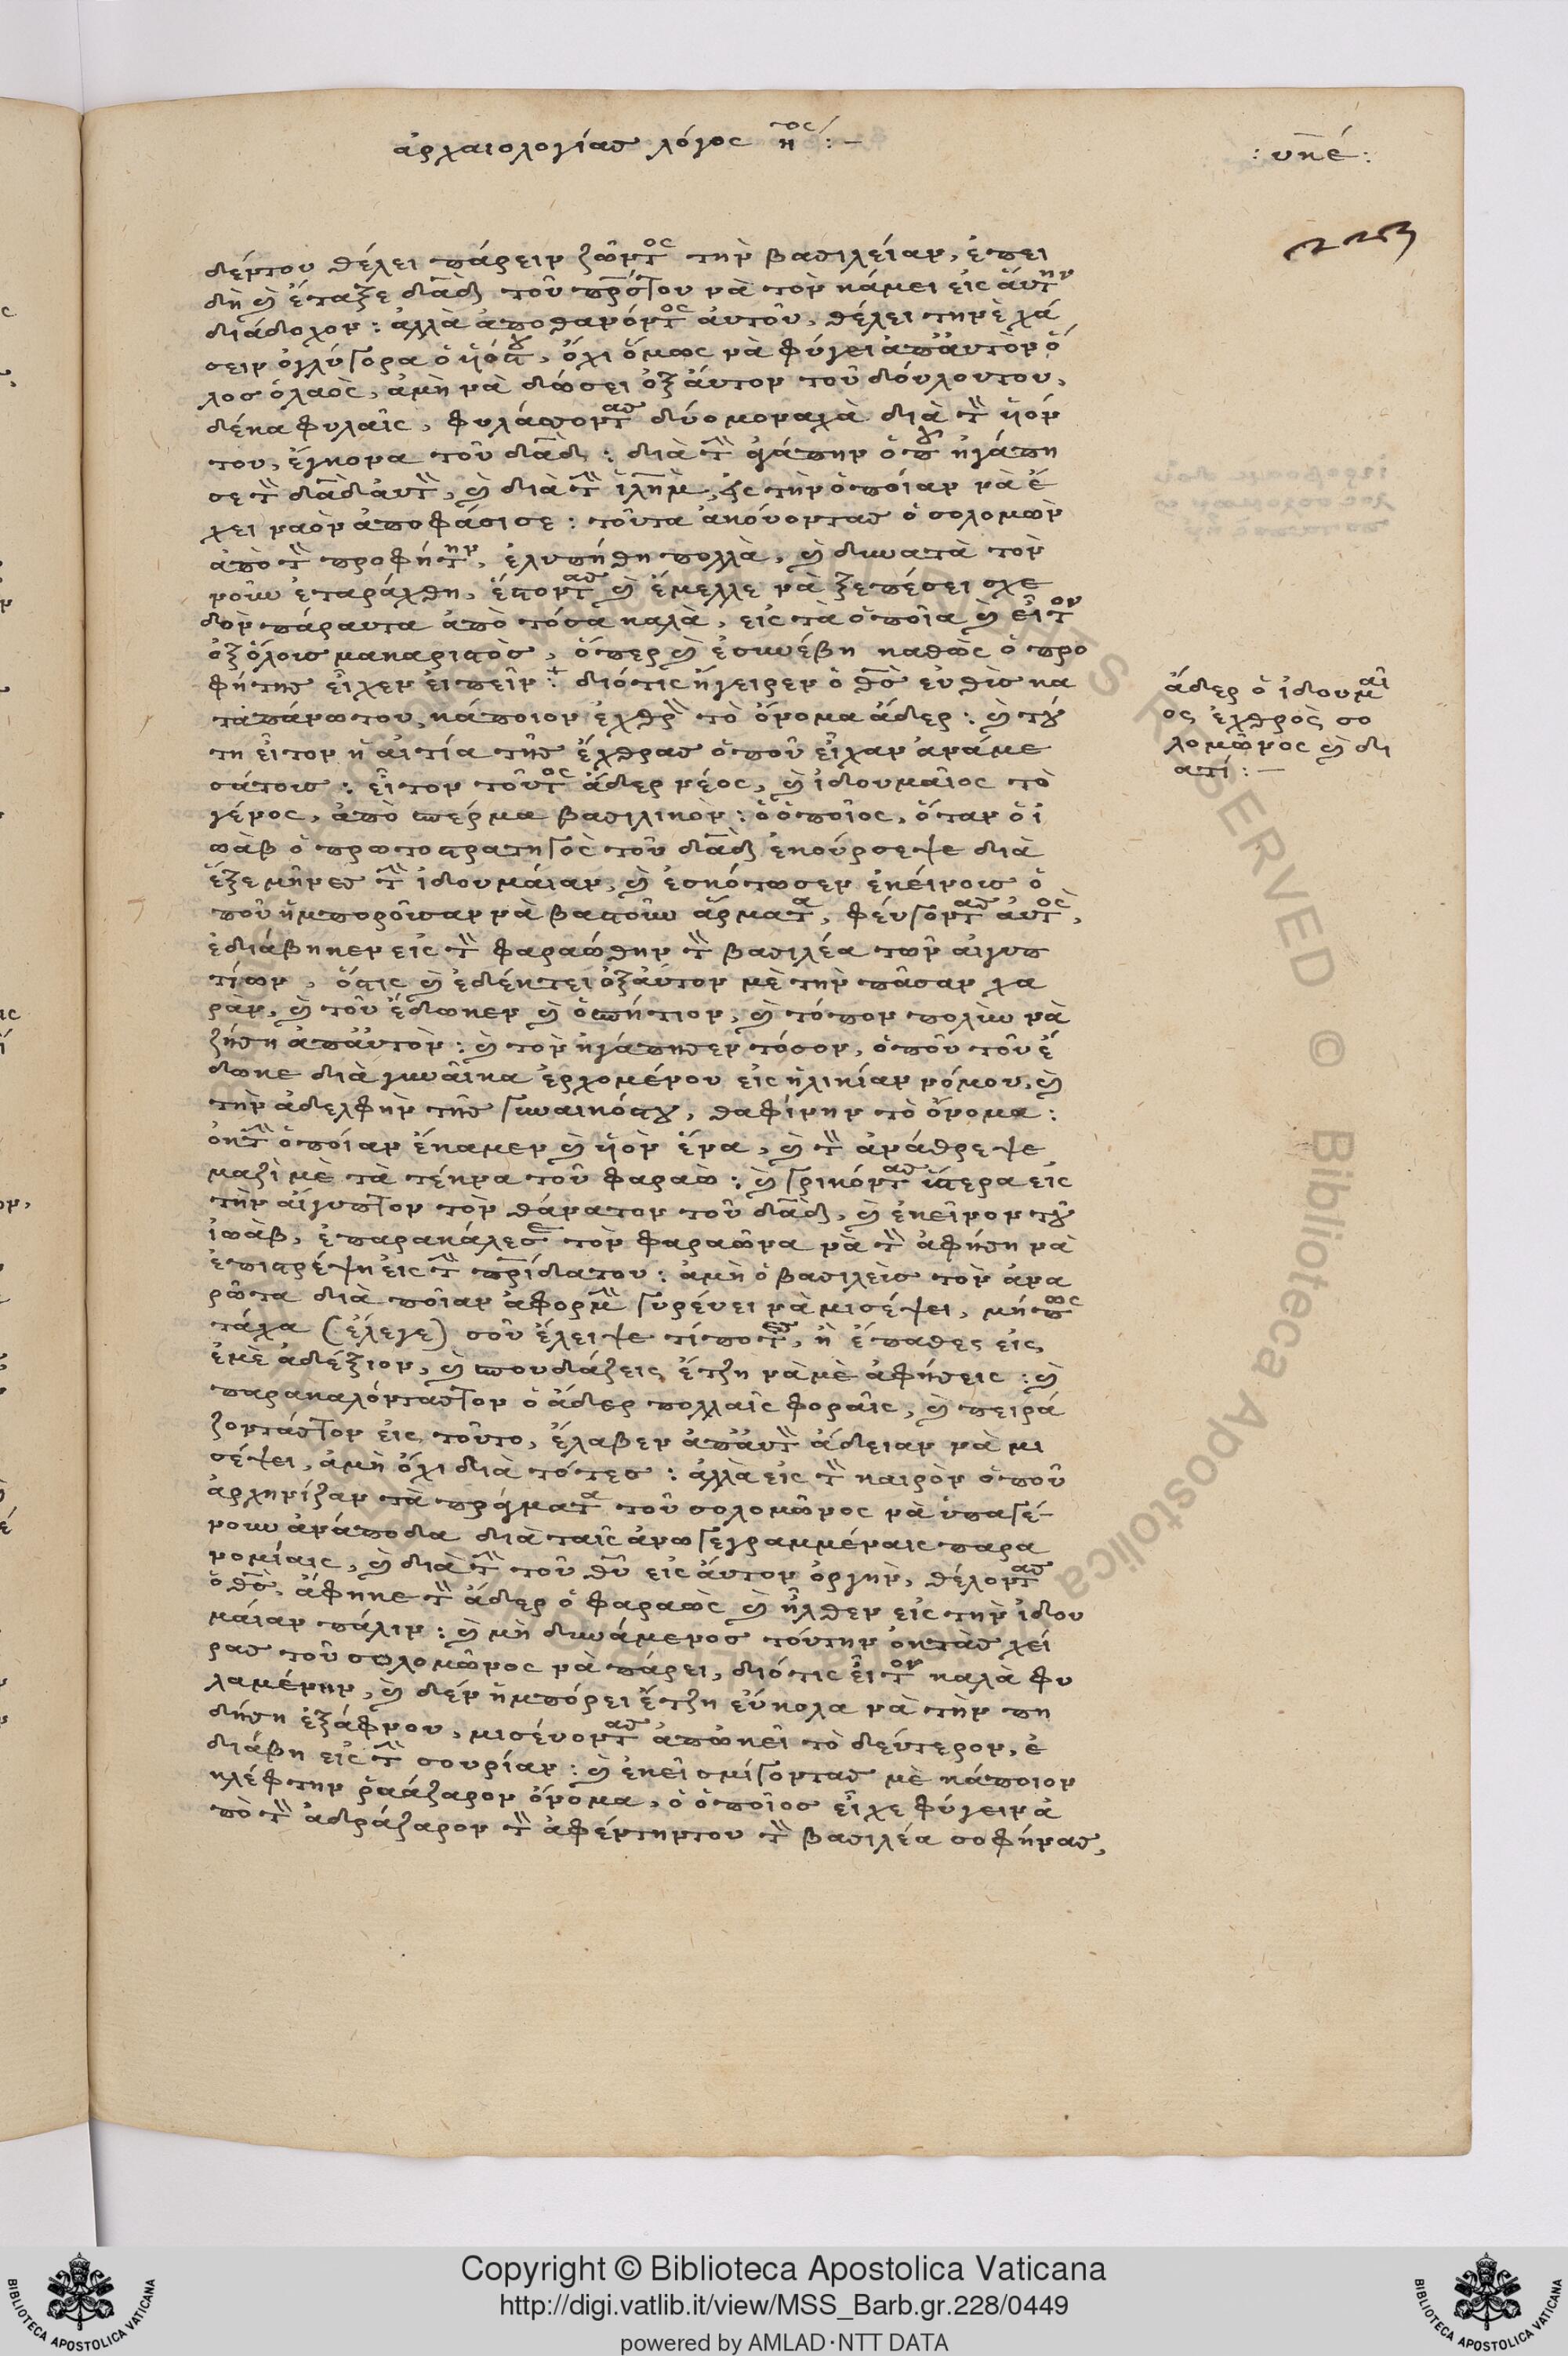 ἀρχαιολογίας λόγος η^ος :—
: υκέ :
223
δέντου θέλει πάρειν ζῶντ^ος τὴν βασιλείαν, ἐπει
δὴ ὲ ἔταξε δα̅δ τοῦ πρ̅ς του νὰ τὸν κάμει εἰς ἀυτ^ην
διάδοχον : ἀλλὰ ἀποθανόντ^ος ἀυτοῦ, θέλει τηνὲ χά
σειν ὀγλύγορα ὁ ὑιός τ^ου, ὄχι ὅμως νὰ φύγει ἀπ' ἀυτὸν ὅ
λος ὁ λαὸς, ἀμὴ νὰ δώσει ὀξ ἀυτον τοῦ δούλου του,
δέκα φυλαῖς, φυλάγοντ^ας δύο μοναχὰ διὰ τ̀ ὑιόν
του, ἔγκονα τοῦ δα̅δ : διὰ τ̀ ἀγάπην ὁπ^οῦ ἠγάπη
σε τ̀ δα̅δ ἀυτ̀, ὲ διὰ τ̀ ἱλη̅μ, εἰς τὴν ὁποίαν νὰ ἔ
χει ναὸν ἀποφάσισε : τοῦτα ἀκούοντας ὁ σολομὼν
ἀπὸ τ̀ προφήτ^ην, ἐλυπήθη πολλὰ, ὲ δυνατὰ τὸν
νοῦν ἐταράχθη, ἔστοντ^ας ὲ ἔμελλε νὰ ξεπέσει σχε
δὸν πάραυτα ἀπὸ τόσα καλὰ, εἰς τὰ ὁποῖα ὲ εἶτ^ον
ὀξ ὅλους μακαριστὸς, ὅπερ ὲ ἐσυνέβη καθὼς ὁ προ
φήτης εἶχεν εἰπεῖν : διότις ἤγειρεν ὁ θ̅ς εὐθὺς κα
τὰ πάνω του κάποιον ἐχθρ̀ τὸ ὄνομα ἄδερ : ὲ τού
τη εἶτον ἡ αἰτία τῆς ἔχθρας ὁποῦ εἶχαν ἀνάμε
σάτους : εἶτον τοῦτ^ος ἄδερ νέος, ὲ ἰδουμαῖος τὸ
γένος, ἀπὸ σπέρμα βασιλικὸν : ὁ ὁποῖος, ὅταν ὁ ἰ
ωὰβ ὁ πρωτοστρατηγὸς τοῦ δα̅δ ἐκούρσεψε διὰ
ἕξε μῆνες τ̀ ἰδουμάιαν, ὲ ἐσκότωσεν ἐκείνους ὁ
ποῦ ἠμποροῦσαν νὰ βαστοῦν ἅρματ^α, φεύγοντ^ας ἀυτ^ὸς,
ἐδιάβηκεν εἰς τ̀ φαραώθην τ̀ βασιλέα τῶν αἰγυπ
τίων, ὅστις ὲ ἐδέκτει ὀξ ἀυτον μὲ τὴν πᾶσαν χα
ρὰν, ὲ τοῦ ἔδωκεν ὲ ὁσπήτιον, ὲ τόπον πολὺν νὰ
ζήση ἀπ' ἀυτὸν : ὲ τὸν ἠγάπησεν τόσον, ὁποῦ τοῦ ἔ
δωκε διὰ γυναῖκα ἐρχομένου εἰς ἡλικίαν νόμου, ὲ
τὴν ἀδελφὴν τῆς γυναικός του, θαφίνην τὸ ὄνομα :
ὀκ τ̀ ὁποίαν ἔκαμεν ὲ ὑιὸν ἕνα, ὲ τ̀ ἀνάθρεψε
μαζὶ μὲ τὰ τέκνα τοῦ φαραὼ : ὲ γρικόντ^ας ὕστερα εἰς
τὴν αἴγυπτον τὸν θάνατον τοῦ δα̅δ, ὲ ἐκεῖνον τοῦ
ἰωὰβ, ἐπαρακάλεσ^ε τὸν φαραῶνα νὰ τ̀ ἀφήση νὰ
ἐπιστρέψη εἰς τ̀ πρ̅ίδα του : ἀμὴ ὁ βασιλεὺς τὸν ἀνα
ρῶτα διὰ ποῖαν ἀφορμ̀ γυρεύει νὰ μισέψει, μήπ^ως
τάχα (ἔλεγε) σοῦ ἔλειψε τίποτ^ες, ἢ ἔπαθες εἰς
ἐμὲ ἀδέξιον, ὲ σπουδάζεις ἔτζη νὰ μὲ ἀφήσεις : ὲ
παρακαλόντας τον ὁ ἄδερ πολλαῖς φοραῖς, ὲ πειρά
ζοντάς τον εἰς τοῦτο, ἔλαβεν ἀπ' ἀυτ̀ ἄδειαν νὰ μι
σέψει, ἀμὴ ὄχι διὰ τότες : ἀλλὰ εἰς τ̀ καιρὸν ὁποῦ
ἀρχηνίζαν τὰ πράγματ^α τοῦ σολομῶνος νὰ ὑπαγέ-
νουν ἀνάποδα διὰ ταῖς ἀνωγεγραμμέναις παρα
νομίαις, ὲ διὰ τ̀ τοῦ θ̅υ εἰς ἀυτον ὀργὴν, θέλοντ^ας
ὁ θ̅ς, ἄφηκε τ̀ ἄδερ ὁ φαραὼς ὲ ἦλθεν εἰς τὴν ἰδου
μάιαν πάλιν : ὲ μὴ δυνάμενος τούτην ὀκ τὰς χεί
ρας τοῦ σολομῶνος νὰ πάρει, διότις εἶτ^ον καλὰ φυ
λαμένην, ὲ δὲν ἠμπόρει ἔτζη εὔκολα νὰ τὴν πη
δήση ἐξάφνου, μισέυοντ^ας ἀπ' ἐκεῖ τὸ δεύτερον, ἐ
διάβη εἰς τ̀ σουρίαν : ὲ ἐκεῖ σμίγοντας μὲ κάποιον
κλέφτην ῥαάζαρον ὄνομα, ὁ ὁποῖος εἶχε φύγειν ἀ
πὸ τ̀ ἀδράζαρον τ̀ ἀφέντην του τ̀ βασιλέα σοφήνας,
ἄδερ ὁ ἰδουμ^αῖ
ος ἐχθρὸς σο
λομῶνος ὲ δι
ατί :—
Copyright © Biblioteca Apostolica Vaticana
http://digi.vatlib.it/view/MSS_Barb.gr.228/0449
powered by AMLAD·NTT DATA
BIBLIOTECA APOSTOLICA VATICANA
BIBLIOTECA APOSTOLICA VATICANA